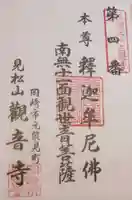 第四番
本尊釋迦牟尼佛
南無十一面觀世音菩薩
岡崎市元能見町
見松山觀音寺